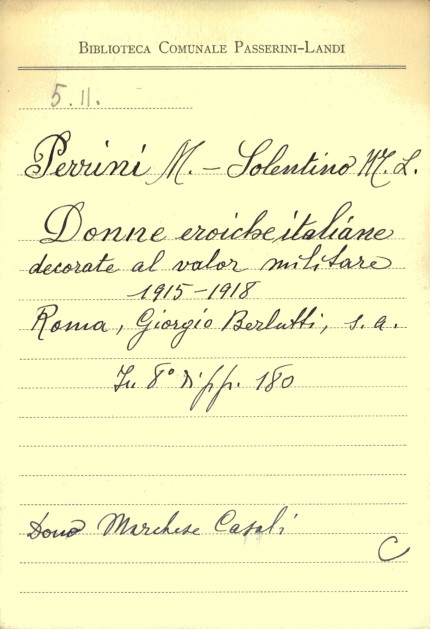 BIBLIOTECA COMUNALE PASSERINI-LANDI
5.11.
Perrini M. – Solentino M. L.
Donne eroiche italiane
decorate al valor militare
1915-1918
Roma, Giorgio Berlutti, s. a.
In 8° di pp. 180
Dono Marchese Casali
C